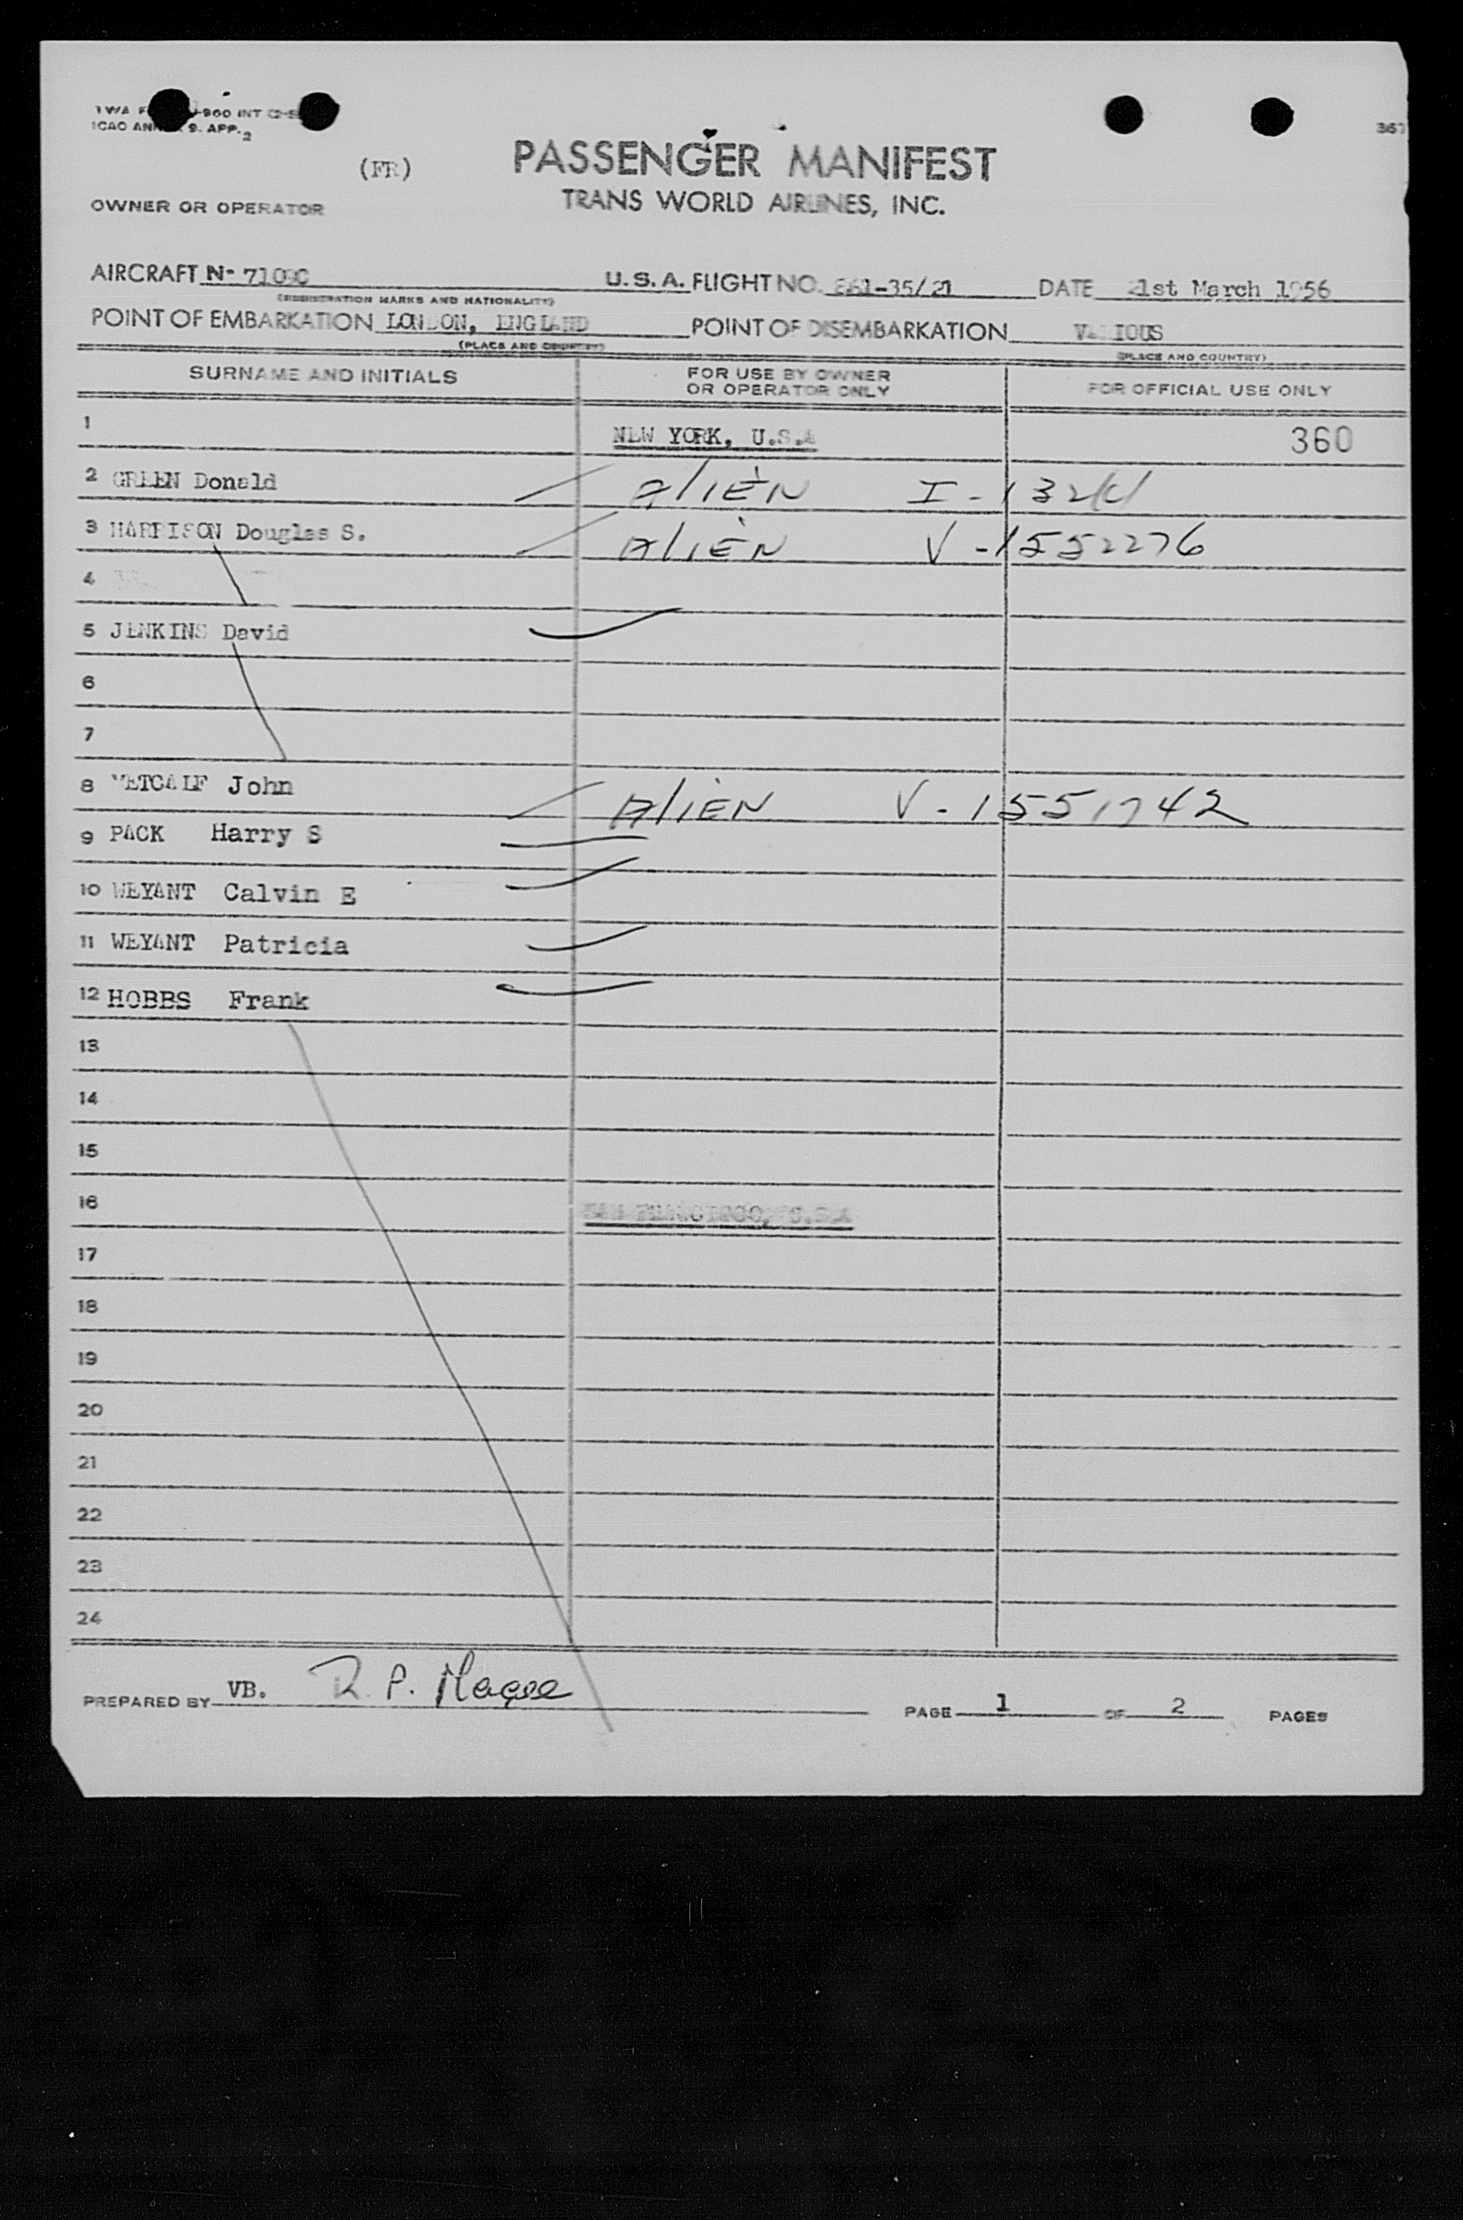 ICAO ANNEX 9. APP. 2
367
(FR)
PASSENGER MANIFEST
TRANS WORLD AIRLINES, INC.
OWNER OR OPERATOR
AIRCRAFT N- U.S.A. FLIGHT NO. 861-35/21 DATE 21st March 1956
(REGISTRATION MARKS AND NATIONALITY)
POINT OF EMBARKATION LONDON, ENGLAND POINT OF DISEMBARKATION VARIOUS
(PLACE AND COUNTRY) (PLACE AND COUNTRY)
SURNAME AND INITIALS FOR USE BY OWNER OR OPERATOR ONLY FOR OFFICIAL USE ONLY
1 NEW YORK, U.S.A 360
2 GREEN Donald Alien
3 HARRISON Douglas S. Alien V-1552276
4
5 JENKINS David
6
7
8 METCALF John Alien V-1551742
9 PACK Harry S
10 WEYANT Calvin E
11 WEYANT Patricia
12 HOBBS Frank
13
14
15
16 SAN FRANCISCO, U.S.A
17
18
19
20
21
22
23
24
PREPARED BY VB. R. P. Magee PAGE 1 OF 2 PAGES